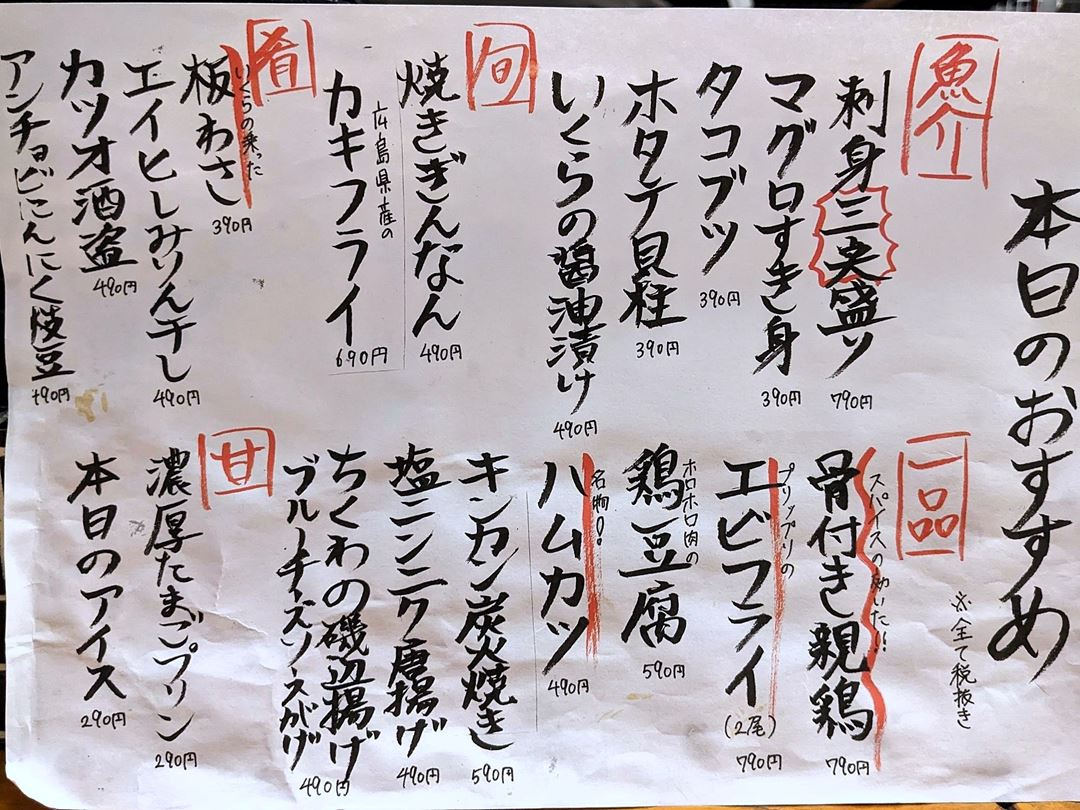 本日のおすすめ
※全て税抜き
魚介
刺身三点盛り
790円
マグロすき身
390円
タコブツ
390円
ホタテ貝柱
390円
いくらの醤油漬け
490円
旬
焼きぎんなん
490円
広島県産の
カキフライ
690円
肴
いくらの乗った
板わさ
390円
エイヒレみりん干し
490円
カツオ酒盗
490円
アンチョビにんにく枝豆
490円
一品
スパイスの効いた!!
骨付き親鶏
790円
プリップリの
エビフライ
(2尾)
790円
ホロホロ肉の
鶏豆腐
590円
名物!
ハムカツ
490円
キンカン炭火焼き
590円
塩ニンニク唐揚げ
490円
ちくわの磯辺揚げ
ブルーチーズソースがけ
490円
甘
濃厚たまごプリン
290円
本日のアイス
290円